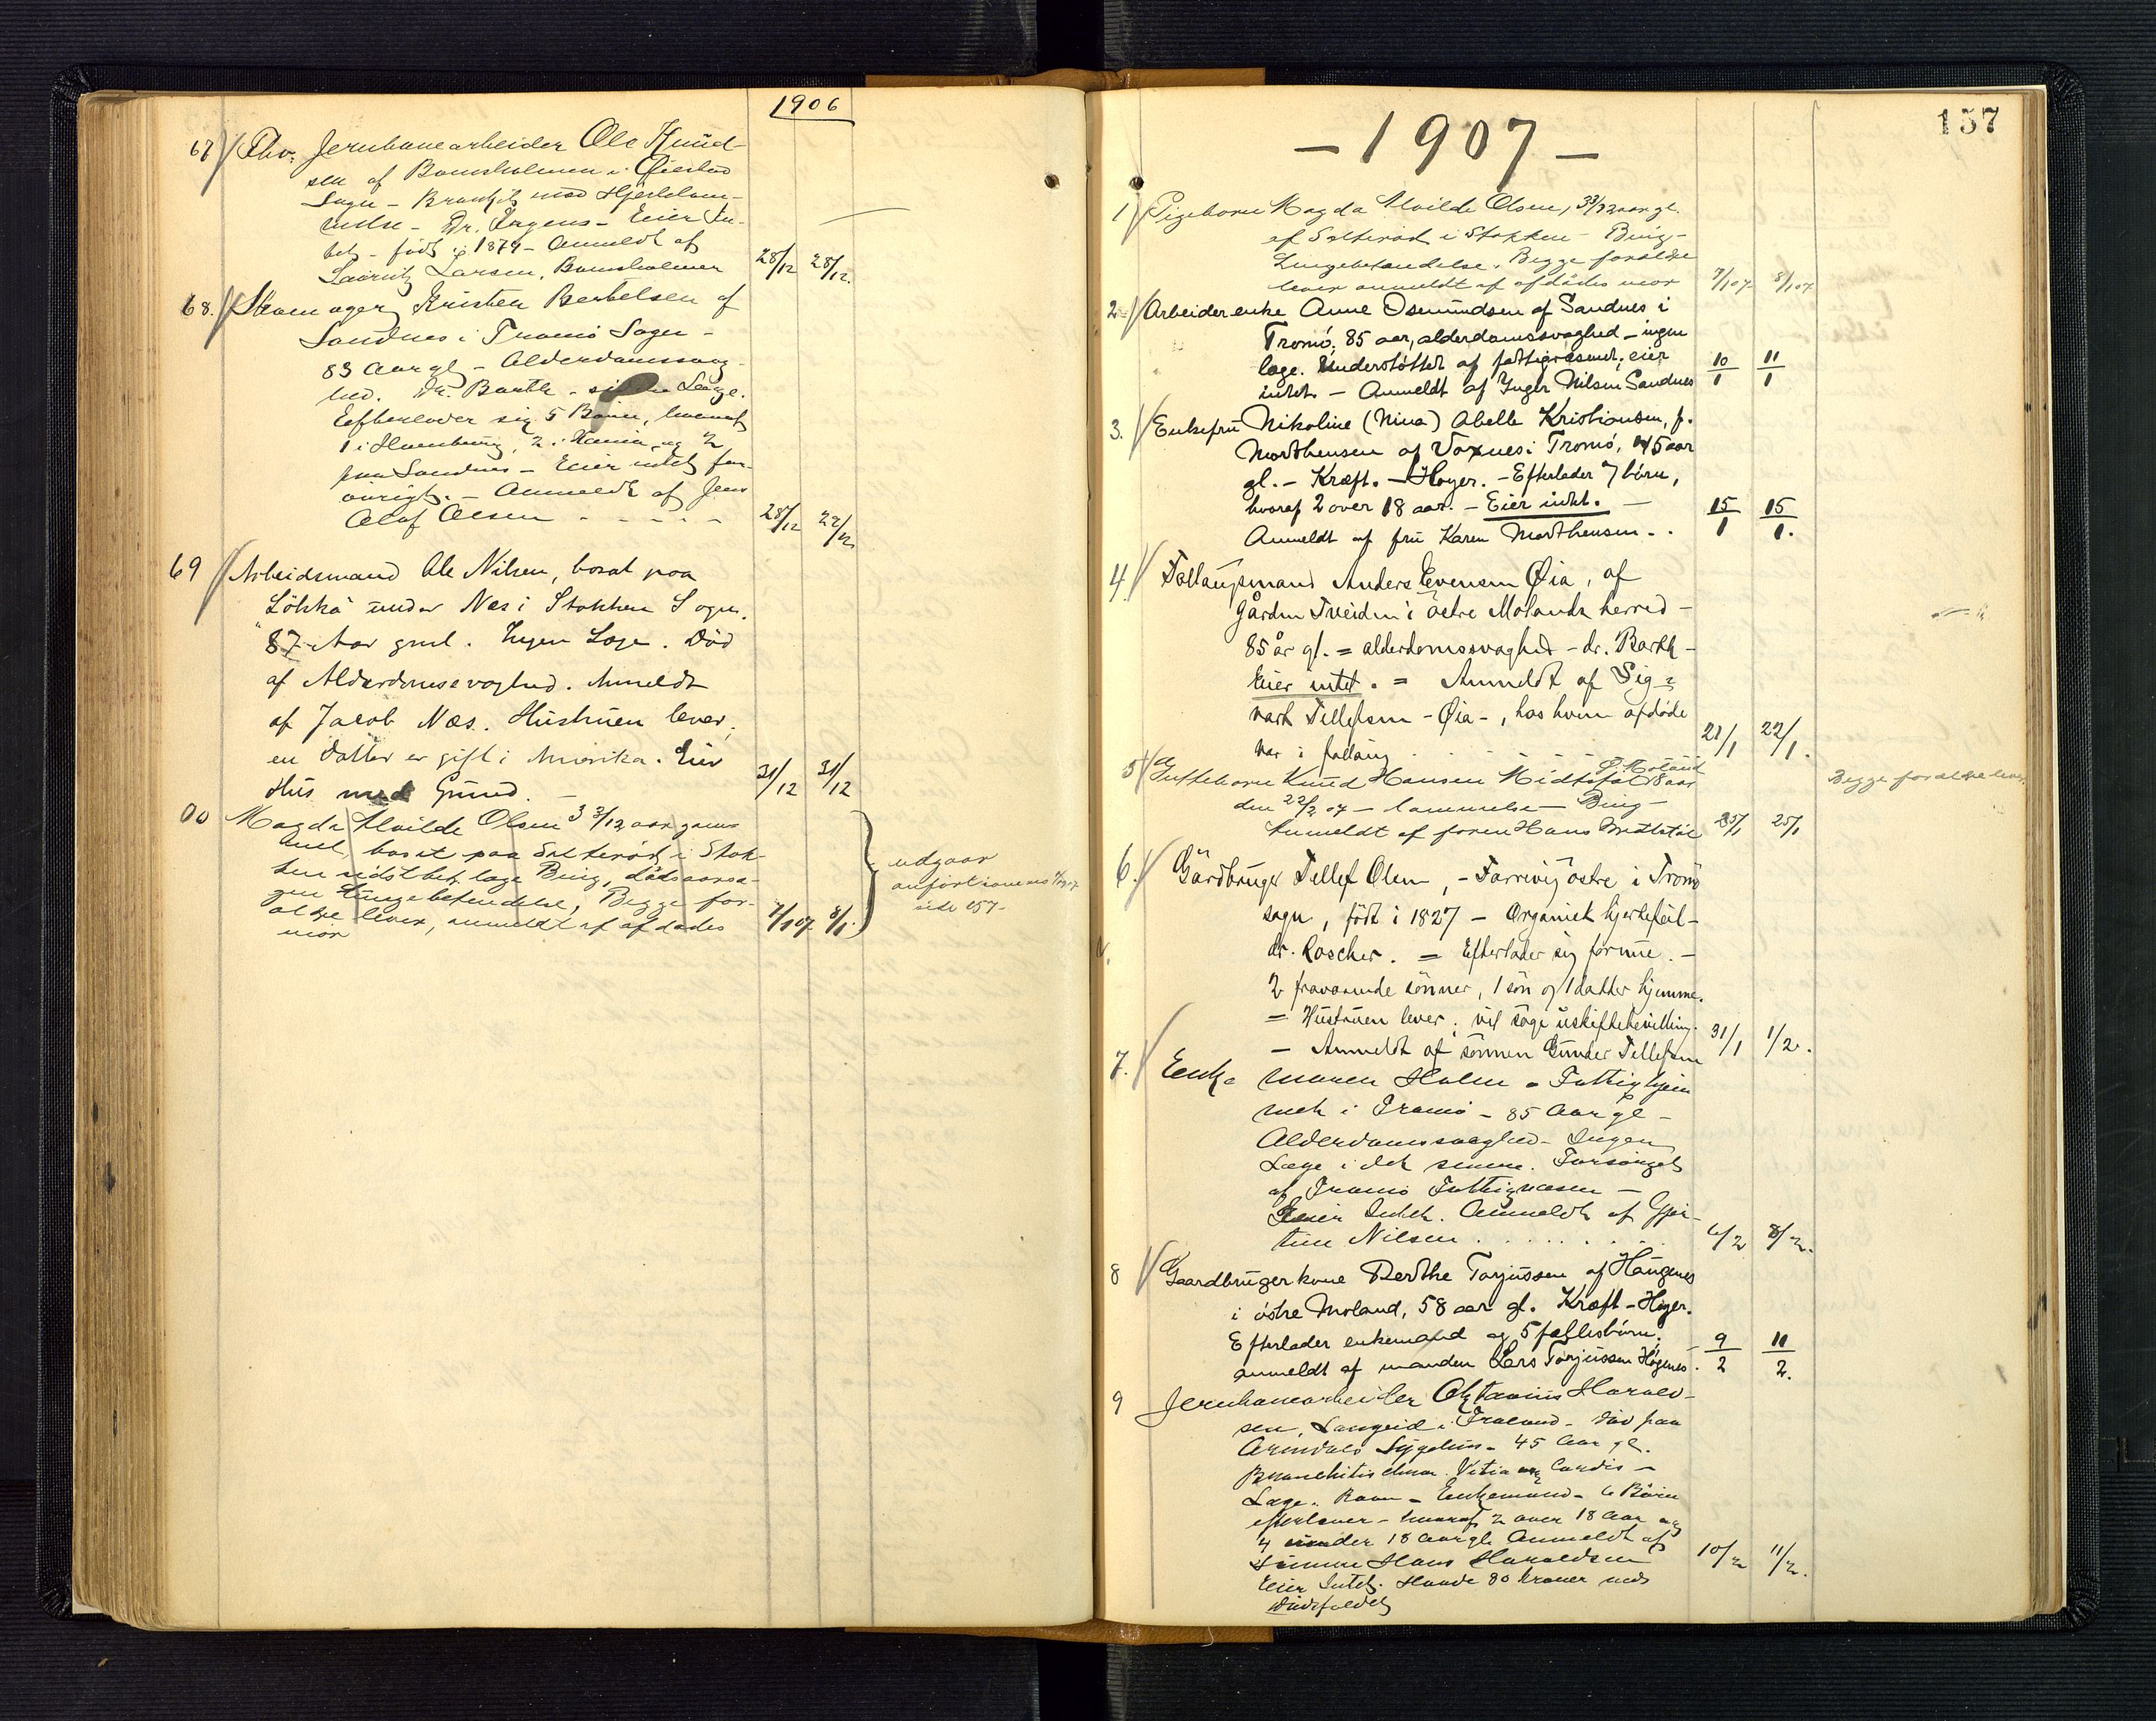 1906
67 Fhv. Jernbanearbeider Ole Knud-
sen af Bomsholmen i Øiestad
Sogn - Bronkit med Hjertelam-
melse - Dr. Jrgens - Eier In-
tet - født i 1874 - Anmeldt af
Lauritz Larsen, Bomsholmen 28/12 28/12.
68. Skomager Kristen Berthelsen af
Sandnes i Tromø Sogn -
83 Aar gl - Alderdomssvag-
hed. Dr. Barth - sidste Læge.
Efterlader sig 5 Børn, hvoraf
1 i Hamburg, 2 i Xania og 2
paa Sandnes - Eier intet for-
øvrigt. - Anmeldt af Jens
Olaf Olsen - - - - - 28/12 29/12
69 Arbeidsmand Ole Nilsen, bosat paa
under Næs i Stokken Sogn.
87 Aar gml. Ingen Læge. Død
af Alderdomsvaghed. Anmeldt
af Jacob Næs. Hustruen lever,
en Datter er gift i Amerika. Eier
Hus med Grund. - 31/12 31/12
00 Magda Alvilde Olsen 3 3/12 aar gam-
mel, bosat paa Salterød i Stok-
ken sidst beh. læge Bing, dødsaarsa-
gen Lungebetændelse, Begge for-
ældre lever, anmeldt af afdødes
mor 7/1 07. 8/1.
udgaar
anført
side 157-
157
- 1907 -
1 Pigebarn Magda Alvilde Olsen, 3 3/12 aar gl.
af Salterød i Stokken - Bing -
Lungebetændelse. Begge forældre
lever anmeldt af afdødes mor 7/1 07 8/1 07
2 Arbeiderenke Anne Osmundsen af Sandnes i
Tromø, 85 aar, alderdomssvaghed - ingen
læge. Understøttet af fattigvæsenet, eier
intet. - Anmeldt af Inger Nilsen Sandnes 10/1 11/1
3. Enkefru Nikoline (Nina) Abelle Kristiansen, f.
Morthensen af Voxnes i Tromø, 45 aar
gl. - Kræft. - Høyer. - Efterlader 7 børn,
hvoraf 2 over 18 aar. - Eier intet. -
Anmeldt af fru Karen Morthensen. - 15/1 15/1.
4. Follaugsmand Anders Evensen Øia, af
Gården Tveiden i østre Molands herred -
85 år gl. = alderdomssvaghed - dr. Barth -
Eier intet. = Anmeldt af Sig=
vart Tellefsen - Øia -, hos hvem afdøde
var i follaug . . . 21/1 22/1.
Ø. Moland
5 Guttebarn Knud Hansen Midtstøl 18 aar
den 22/2 07 - lammelse - Bing -
Anmeldt af faren Hans Midtstøl 25/1 25/1
Begge forældre lever.
6. Gårdbruger Tellef Olsen, - Færvig østre i Tromø
sogn, født i 1827 - Organisk hjertefeil -
dr. Roscher. = Efterlader sig formue. -
2 fraværende sønner, 1 søn og 1 datter hjemme.
= Hustruen lever; vil søge uskiftebevilling.
- Anmeldt af sønnen Gunder Tellefsen 31/1 1/2.
7. Enke Maren Holm - Fattighjem-
met i Tromø - 85 Aar gl -
Alderdomssvaghed - Ingen
Læge i det senere. Forsørget
af Tromø Fattigvæsen -
Eier Intet. Anmeldt af Gjer-
tine Nilsen . . . . . . 6/2 8/2.
8 Gaardbrugerkone Berthe Torjussen af Haugenes
i østre Moland, 58 aar gl. Kræft - Høyer.
Efterlader enkemand og 5 fællesbørn.
anmeldt af manden Lars Torjussen Høgenes. 9/2 11/2.
9 Jernbanearbeider Oktavius Harald-
sen, Langeid i Froland - død paa
Arendals Sygehus - 45 Aar gl.
Bronchitis chron. Vitia Cordis -
Læge: - Enkemand - 6 Børn
efterlever - hvoraf 2 over 18 Aar og
4 under 18 Aar gl. Anmeldt af
Sønnen Hans Haraldsen
Eier Intet. Havde 80 Kroner ved
Dødsfaldet 10/2 11/2.